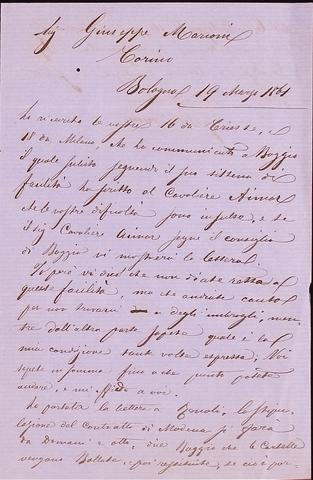 Sig Giuseppe Marioni
Torino
Bologna 19 Marzo 1861
Ho ricevuto le vostre 16 da Trieste, e
18 da Milano, che ho communicati a Boggio
il quale subito seguendo il suo sistema di
facilità ha scritto al Cavaliere Aimar
che le vostre difficoltà sono infuse, e se
il sig Cavaliere Aimar segue il consiglio
di Boggio vi mostrerà la lettera.
Io però vi dico che non diate retta a
queste facilità, ma che andiate cauto
per non trovarvi degli imbrogli, men-
tre dall'altra parte sapete quale è la
mia condizione tante volte espressa. Voi
sapete in somma fino a che punto potete
andare, e mi affido a voi.
Ho portata la lettera a la stipu-
lazione del Contratto di Modena si farà
da Domani e otto, dice Boggio che le Cartelle
vengano Bollate, e poi registrate, se